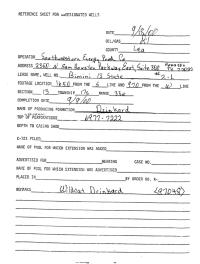 REFERENCE SHEET FOR UNDESIGNATED WELLS
DATE
OIL/GAS
COUNTY Lea
OPERATOR Southwestern Energy Prod. Co.
ADDRESS 2350 N Sam Houston Parkway East, Suite 300 Houston
LEASE NAME, WELL NO. Bimini 13 State
FOOTAGE LOCATION, 1650 FROM THE S LINE AND 990 FROM THE W LINE
SECTION 13 TOWNSHIP RANGE
COMPLETION DATE
NAME OF PRODUCING FORMATION Drinkard
TOP OF PERFORATIONS 6977-7222
DEPTH TO CASING SHOE
C-123 FILED
NAME OF POOL FOR WHICH EXTENSION WAS ASKED
ADVERTISED FOR HEARING CASE NO.
NAME OF POOL FOR WHICH EXTENSION WAS ADVERTISED
PLACED IN BY ORDER NO. R-
REMARKS Wildcat Drinkard